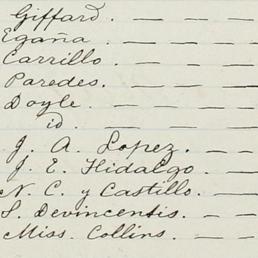 Giffard. — — —
Egaña — — —
Carrillo. — — —
Paredes. — — —
Doyle. — — —
id. — — —
J. A. Lopez. — —
J. E. Hidalgo — —
N. C. y Castillo. — —
S. Devincentis. — —
Miss. Collins. — —